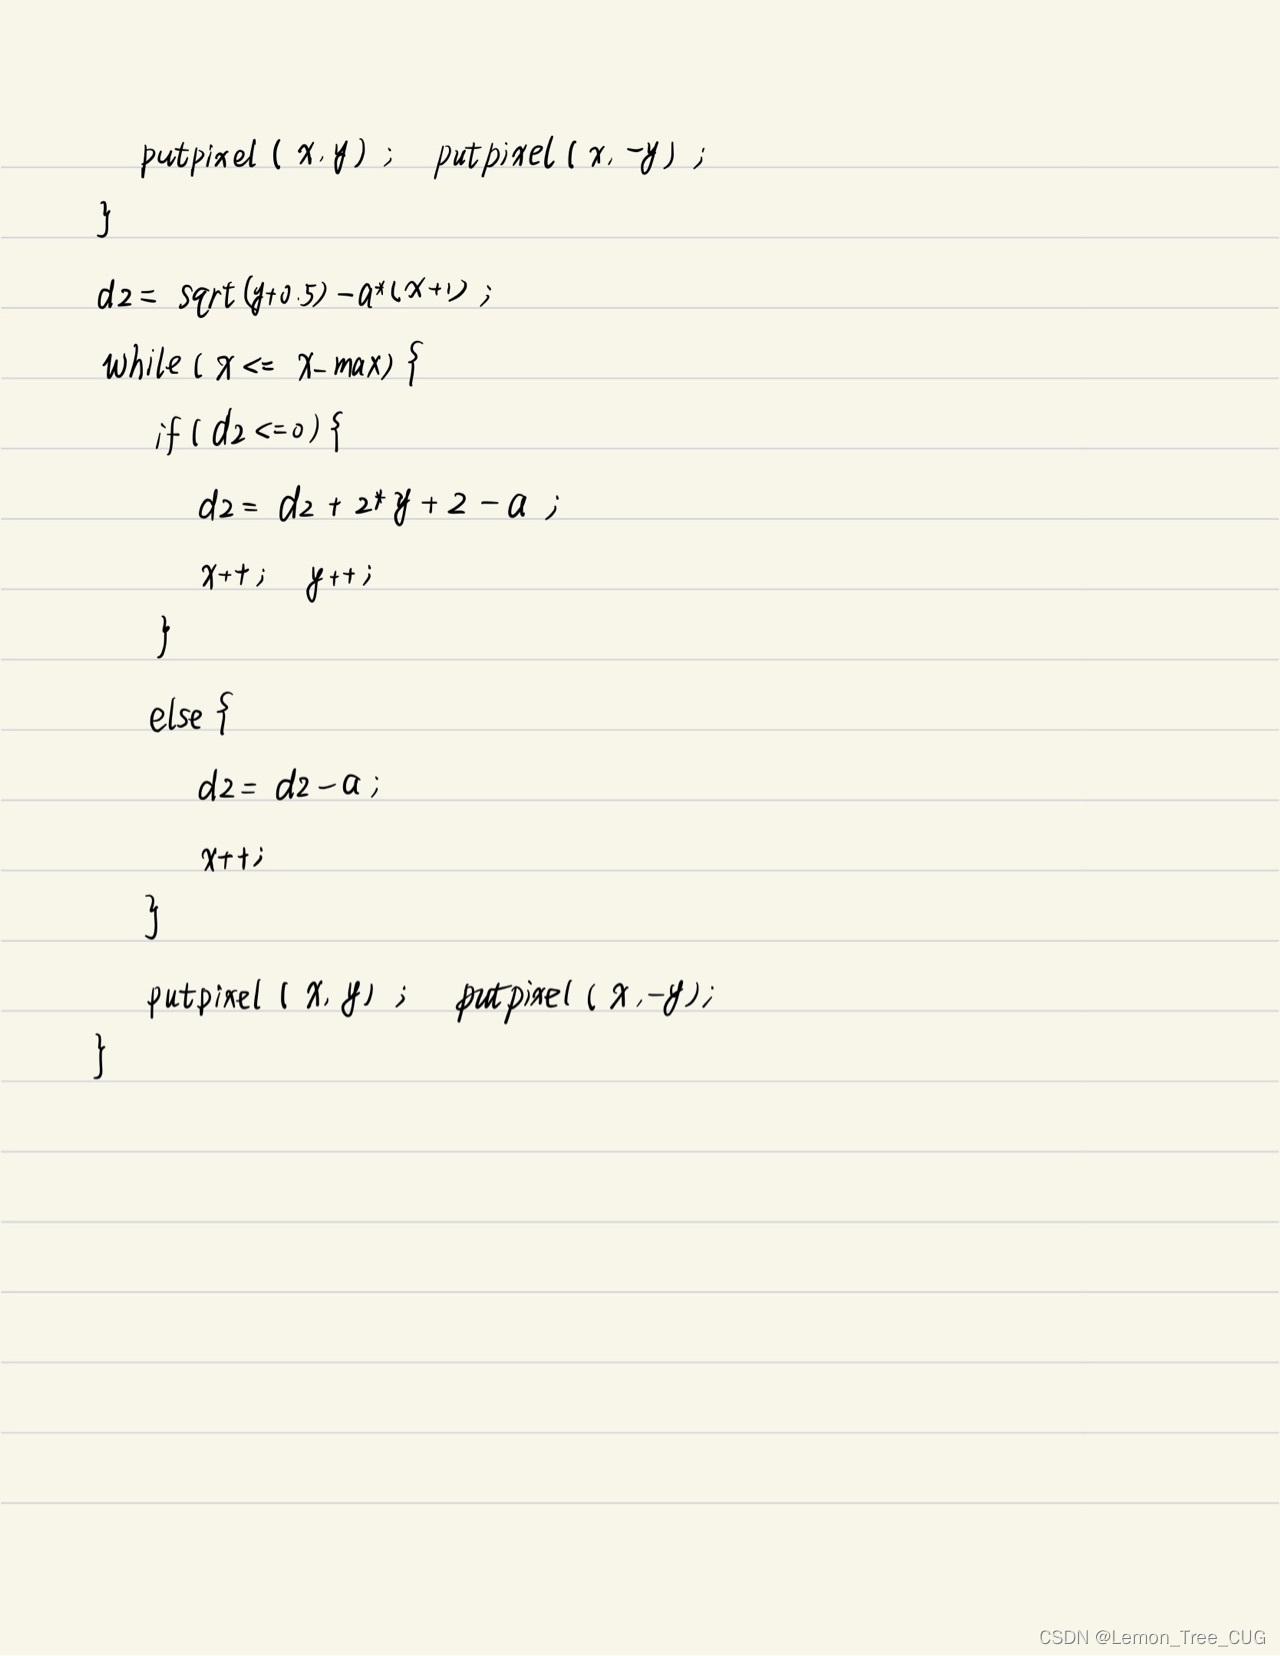 putpixel ( x, y ) ; putpixel ( x, -y ) ;
}
d2 = sqrt(y+0.5) - a*(x+1) ;
while ( x <= x_max) {
if ( d2 <=0) {
d2 = d2 + 2* y + 2 - a ;
x++; y++;
}
else {
d2 = d2 - a ;
x++;
}
putpixel ( x, y) ; putpixel ( x, -y);
}
CSDN @Lemon_Tree_CUG